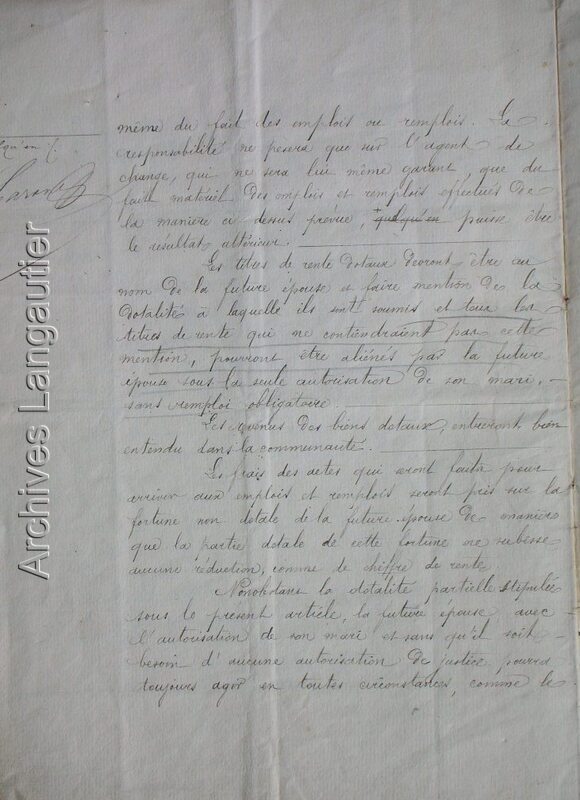 même du fait des emplois ou remplois. La
responsabilité ne pesera que sur l'agent de
change, qui ne sera lui même garant, que du
fait matériel des emplois et remplois effectués de
la manière ci dessus prévue, quelqu'en puisse être
le résultat ultérieur.
Les titres de rente dotaux devront être au
nom de la future épouse et faire mention de la
dotalité à laquelle ils sont soumis et tous les
titres de rente qui ne contiendraient pas cette
mention, pourront être aliénés par la future
épouse sous la seule autorisation de son mari,
sans remploi obligatoire
Les revenus des biens dotaux, entreront bien
entendu dans la communauté.
Les frais des actes qui seront faits pour
arriver aux emplois et remplois seront pris sur la
fortune non dotale de la future épouse de manière
que la partie dotale de cette fortune ne subisse
aucune réduction, comme de chiffre de rente
Nonobstant la dotalité partielle stipulée
sous le présent article, la future épouse avec
l'autorisation de son mari et sans qu'il soit
besoin d'aucune autorisation de justice pourra
toujours agir en toutes circonstances, comme le
qu'en
Archives Langautier